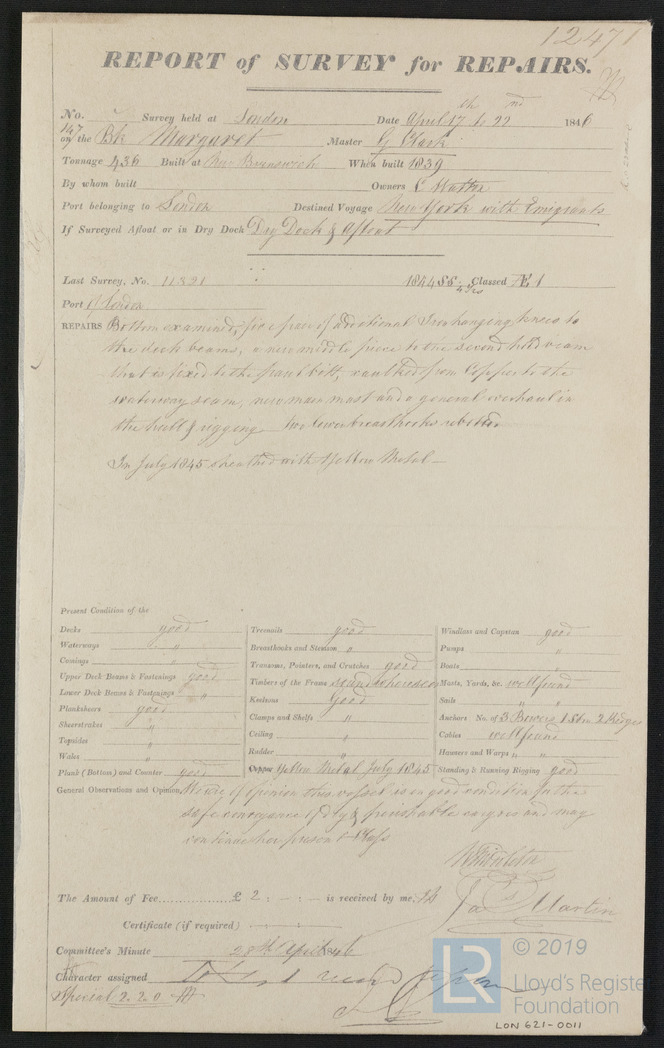 12471
REPORT of SURVEY for REPAIRS.
No. Survey held at London Date April 17th to 22nd 1846
147
on the Bk Margaret Master G Clark
Tonnage 436 Built at New Brunswick When built 1839
By whom built Owners
Port belonging to London Destined Voyage New York with Emigrants
If Surveyed Afloat or in Dry Dock Dry Dock & Afloat
Last Survey, No. 11821 1844 Classed Æ 1
Port of London
REPAIRS Bottom examined, five pair of additional Iron hanging knees to
the deck beams, a new middle piece to the second hold beam
that is fixed to the front bitt, caulked from Copper to the
waterway seam, new main mast and a general overhaul in
the hull & rigging. Two lower breasthooks rebolted
In July 1845 sheathed with Yellow Metal –
Present Condition of the
Decks good
Waterways "
Comings "
Upper Deck Beams & Fastenings good
Lower Deck Beams & Fastenings "
Planksheers good
Sheerstrakes "
Topsides "
Wales "
Plank (Bottom) and Counter good
Treenails good
Breasthooks and Stemson "
Transoms, Pointers, and Crutches good
Timbers of the Frame sound where seen
Keelsons Good
Clamps and Shelfs "
Ceiling "
Rudder "
Copper Yellow Metal July 1845
Windlass and Capstan good
Pumps "
Boats "
Masts, Yards, &c. well found
Sails "
Anchors No. of 3 Bowers 1 Stm 2 Kedges
Cables well found
Hawsers and Warps "
Standing & Running Rigging good
General Observations and Opinion, We are of opinion this vessel is in good condition for the
safe conveyance of dry & perishable cargoes and may
continue her present Class
The Amount of Fee £ 2 : - : - is received by me,
Jas Martin
Certificate (if required) - : - : -
Committee's Minute 28th April 1846
Character assigned
Special 2.2.0
LR
© 2019
Lloyd's Register
Foundation
LON 621-0011